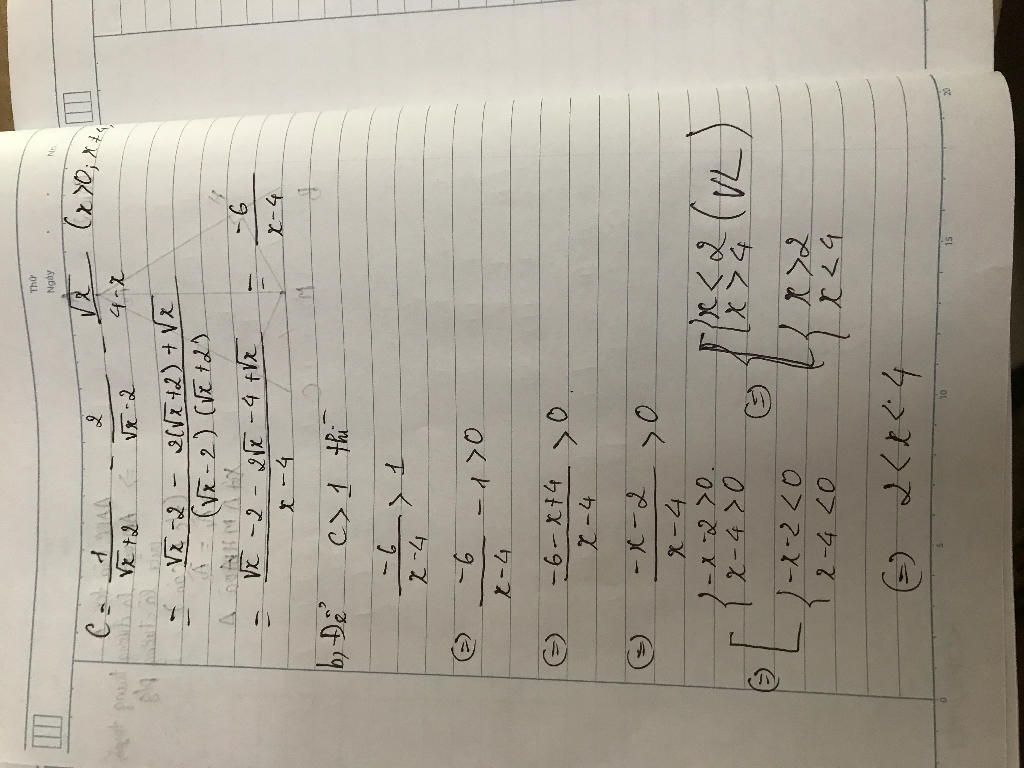 Thứ
Ngày
No.
C = 1/(√x+2) - 2/(√x-2) - √x/(4-x) (x>0, x≠4)
= (√x-2 - 2(√x+2) + √x)/((√x-2)(√x+2))
= (√x - 2 - 2√x - 4 + √x)/(x-4) = -6/(x-4)
b, Để C > 1 thì
-6/(x-4) > 1
(=) -6/(x-4) - 1 > 0
(=) (-6-x+4)/(x-4) > 0
(=) (-x-2)/(x-4) > 0
(=) [ { -x-2>0 ; x-4>0 (=) [ { x<2 ; x>4 (VL)
{ -x-2<0 ; x-4<0 { x>2 ; x<4
(=) 2<x<4
0 5 10 15 20